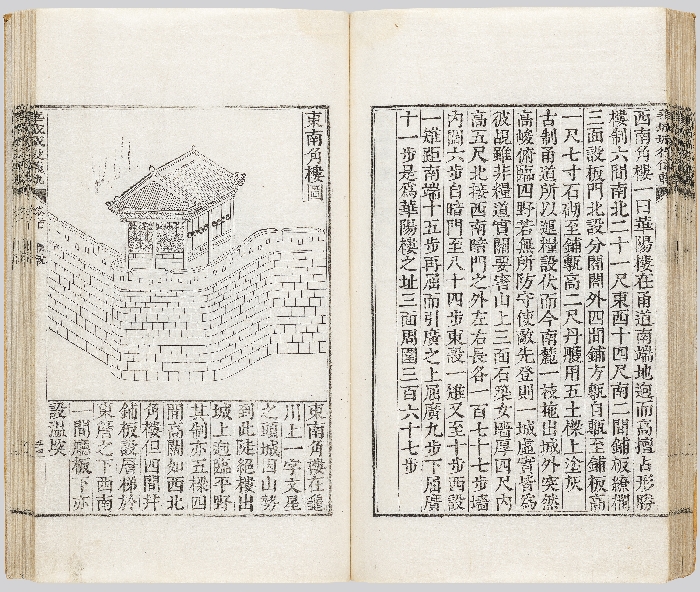 華城城役儀軌
西南角樓一曰華陽樓在甬道南端地迥而高擅占形勝
樓制六間南北二十一尺東西十四尺南二間鋪板繚欄
三面設板門北設分閤閤外四間鋪方甎自甎至鋪板高
一尺七寸石砌至鋪甎高二尺丹雘用五土樑上塗灰
古制甬道所以運糧設伏而今南麓一枝拖出城外突然
高峻俯臨四野若無所防守使敵先登則一城虛實皆爲
彼覘雖非糧道實關要害山上三面石築女墻厚四尺內
高五尺北接西南暗門之外左右長各一百七十七步墻
內闊六步自暗門至八十四步東設一雉又至十步西設
一雉距南端十五步再屈而引廣之上屈廣九步下屈廣
十一步是爲華陽樓之址三面周圍三百六十七步
東南角樓圖
東南角樓在龜
川上一字文星
之頭城因山勢
到此陡絕樓出
城上迥臨平野
其制亦五樑四
間高闊如西北
角樓但四間幷
鋪板設層梯於
東廡之下西南
一間廳板下亦
設溫堗
華城城役儀軌